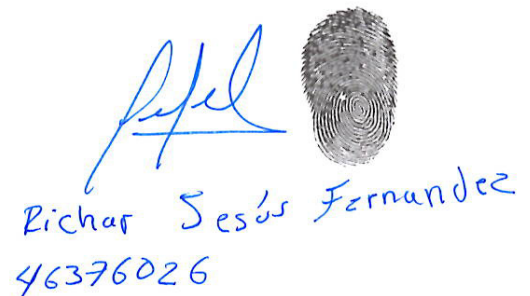 Richar Jesús Fernandez
46376026